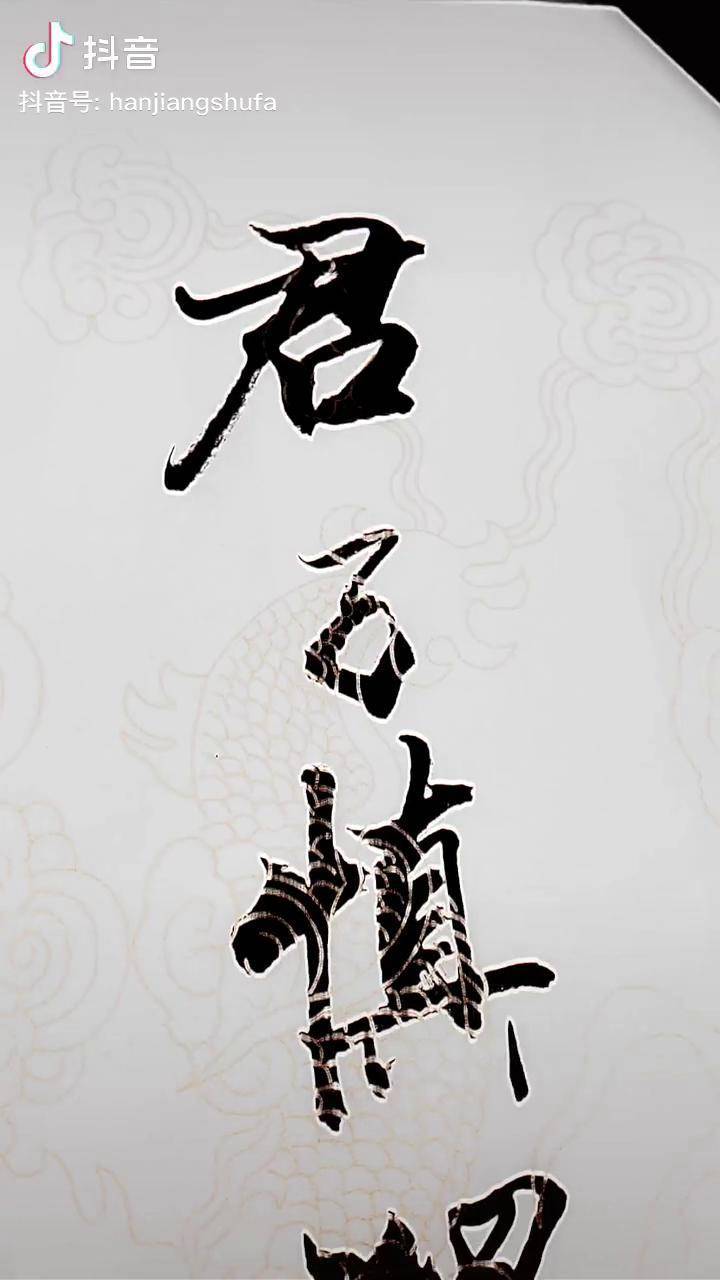 抖音
抖音号: hanjiangshufa
君子慎